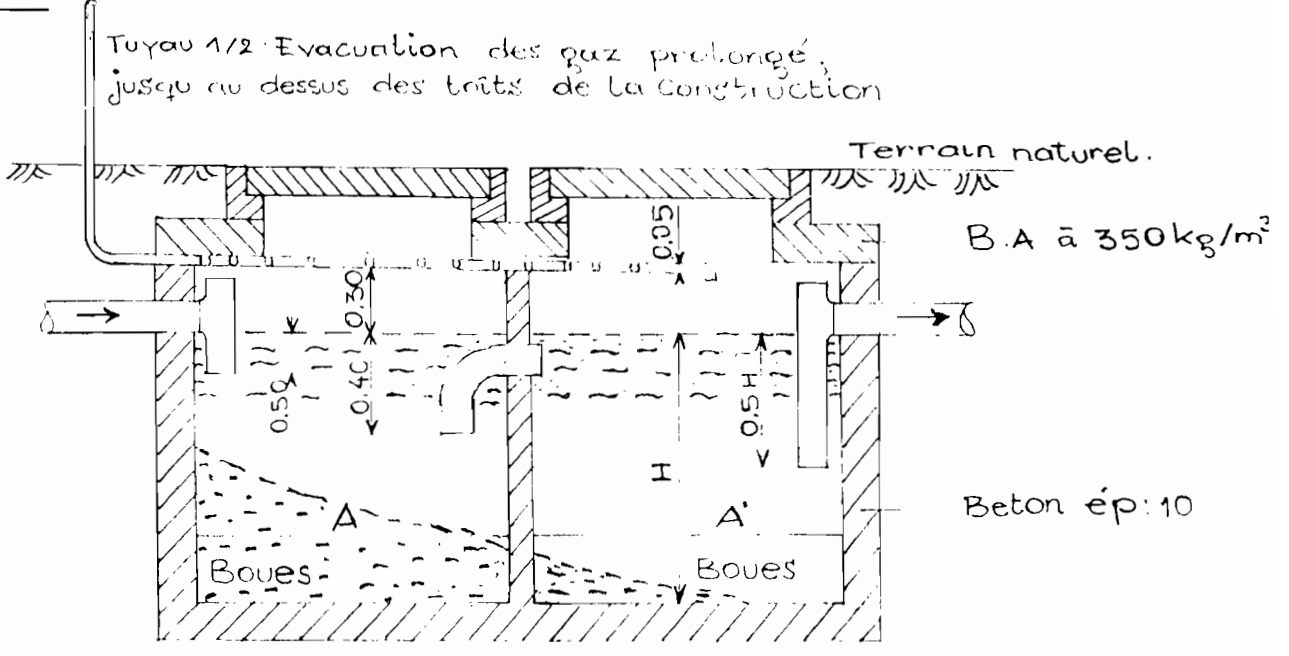 Tuyau 1/2 Evacuation des gaz prolongé,
jusqu au dessus des toîts de la Construction
Terrain naturel.
0.05
B.A à 350kg/m³
0.30
0.50
0.40
0.5H
H
A
A'
Beton ép: 10
Boues
Boues